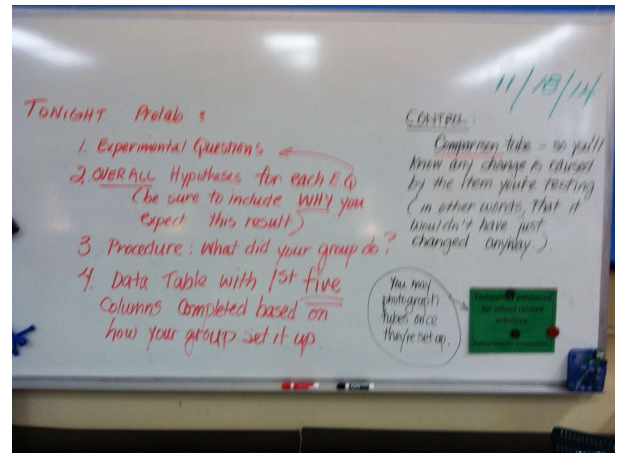 11/18/14
TONIGHT Prelab :
1. Experimental Questions
2. OVERALL Hypotheses for each E.Q
(be sure to include WHY you
expect this result)
3. Procedure: What did your group do?
4. Data Table with 1st five
Columns Completed based on
how your group set it up.
CONTROL:
Comparison tube = so you'll
know any change is caused
by the item you're testing
(in other words, that it
wouldn't have just
changed anyway.)
You may
photograph
tubes once
they're set up.
Technology permitted
for school related
activities